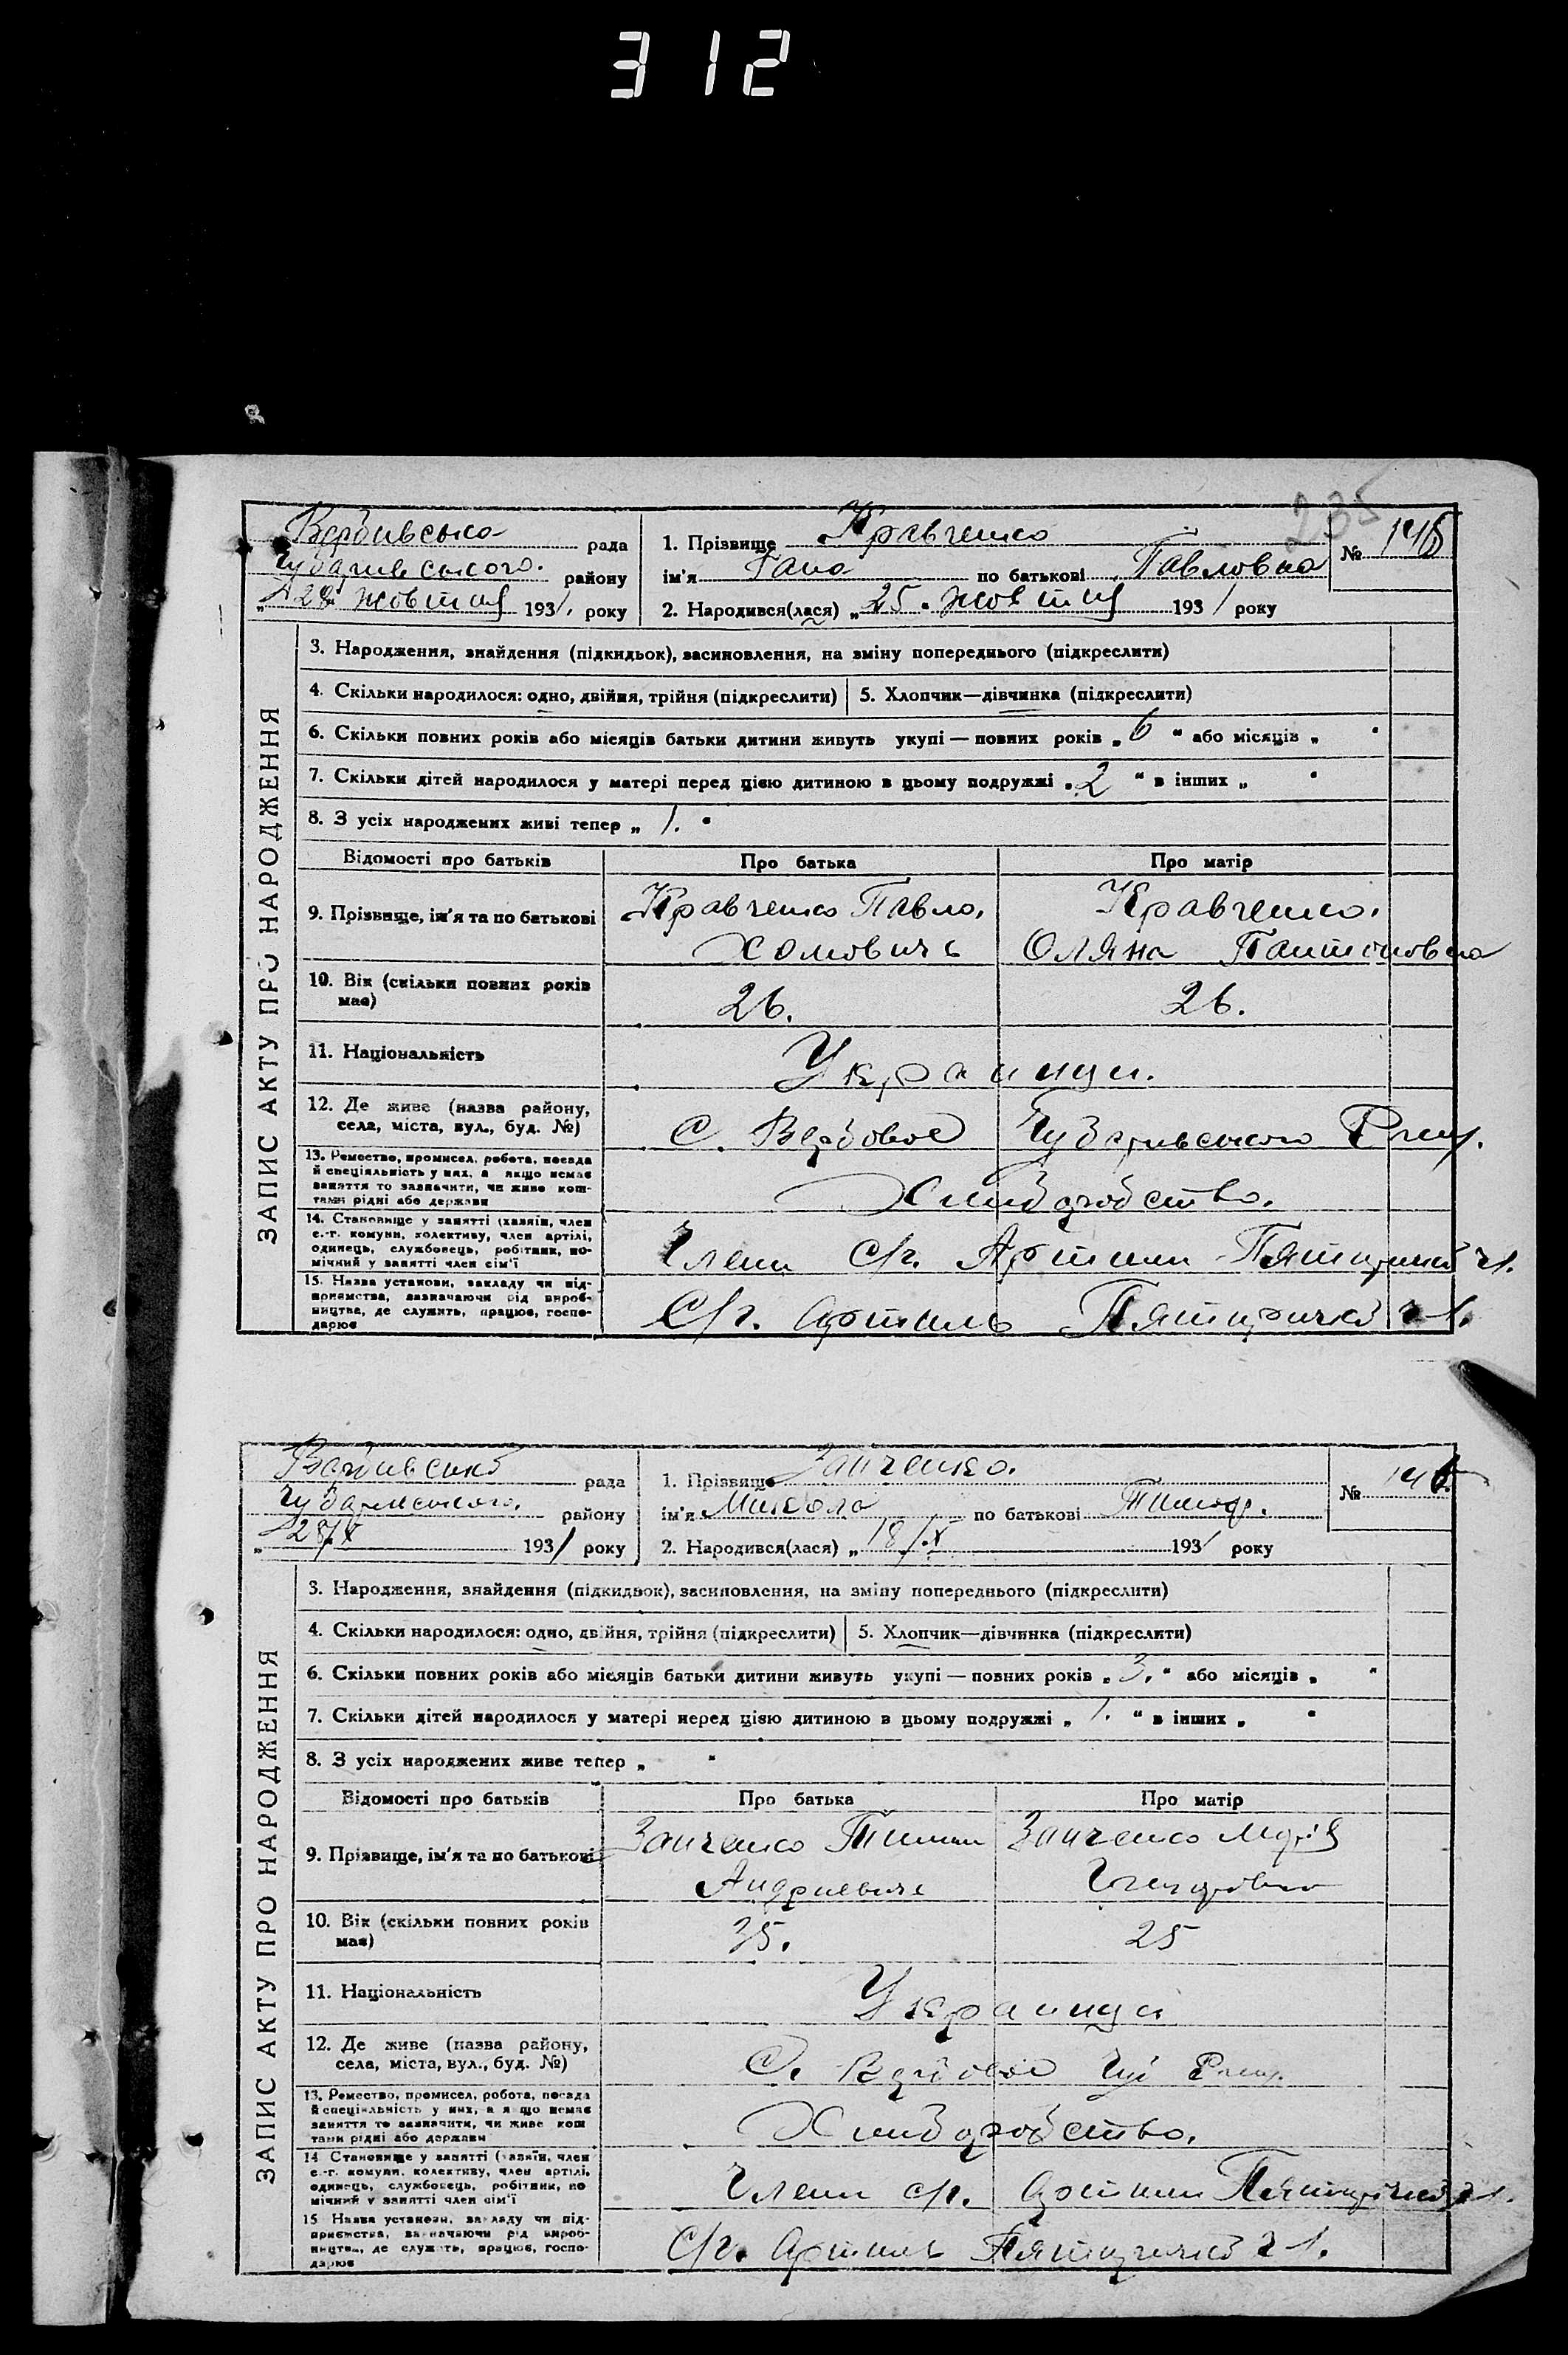 312
235
Вербивська рада
Чубаривського. району
„ 28 жовтня 1931. року
1. Прізвище Кравченко
ім'я Гана по батькові Павловна
2. Народився(лася) „ 25. жовтня 1931 року
№ 145
ЗАПИС АКТУ ПРО НАРОДЖЕННЯ
3. Народження, знайдення (підкидьок), засиновлення, на зміну попереднього (підкреслити)
4. Скільки народилося: одно, двійня, трійня (підкреслити)
5. Хлопчик—дівчинка (підкреслити)
6. Скільки повних років або місяців батьки дитини живуть укупі — повних років „ 6 “ або місяців „ “
7. Скільки дітей народилося у матері перед цією дитиною в цьому подружжі „ 2 “ в інших „ “
8. З усіх народжених живі тепер „ 1. “
Відомості про батьків Про батька Про матір
9. Прізвище, ім'я та по батькові
Кравченко Павло.
Хомович
Кравченко.
Оляна Пантоновна
10. Вік (скільки повних років має)
26. 26.
11. Національність
Украинци.
12. Де живе (назва району,
села, міста, вул., буд. №)
С. Вербовое Чубаривського Раену.
13. Ремество, промисел, робота, посада
й спеціяльність у них, а якщо немає
заняття то зазначити, чи живе кош-
тами рідні або держави
Хлиборобство.
14. Становище у занятті (хазяїн, член
с.-г. комуни, колективу, член артілі,
одинець, службовець, робітник, по-
мічний у занятті член сім'ї
Члени С/г. Артили Пятиричка ч 1.
15. Назва установи, закладу чи під-
приємства, зазначаючи рід вироб-
ництва, де служить, працює, госпо-
дарює
С/г. Артиль Пятиричка ч 1.
Вербивська рада
Чубаривського. району
„ 28/X 1931 року
1. Прізвище Заиченко.
ім'я Микола по батькові Тимоф.
2. Народився(лася) „ 18/X 1931 року
№ 146
ЗАПИС АКТУ ПРО НАРОДЖЕННЯ
3. Народження, знайдення (підкидьок), засиновлення, на зміну попереднього (підкреслити)
4. Скільки народилося: одно, двійня, трійня (підкреслити)
5. Хлопчик—дівчинка (підкреслити)
6. Скільки повних років або місяців батьки дитини живуть укупі — повних років „ 3. “ або місяців „ “
7. Скільки дітей народилося у матері перед цією дитиною в цьому подружжі „ 1. “ в інших „ “
8. З усіх народжених живе тепер „ “
Відомості про батьків Про батька Про матір
9. Прізвище, ім'я та по батькові
Заиченко
Андриевич
Заиченко Мария
10. Вік (скільки повних років має)
35. 25
11. Національність
Украинци
12. Де живе (назва району,
села, міста, вул., буд. №)
С. Вербовое Чуб Раену.
13. Ремество, промисел, робота, посада
й спеціяльність у них, а якщо немає
заняття то зазначити, чи живе кош
тами рідні або держави
Хлиборобство.
14 Становище у занятті (хазяїн, член
с.-г. комуни, колективу, член артілі,
одинець, службовець, робітник, по
мічний у занятті член сім'ї
Члени с/г. Артили Пятиричка ч 1.
15 Назва установи, закладу чи під-
приємства, зазначаючи рід вироб-
ництва, де служить, працює, госпо-
дарює
С/г. Артиль Пятиричка ч 1.